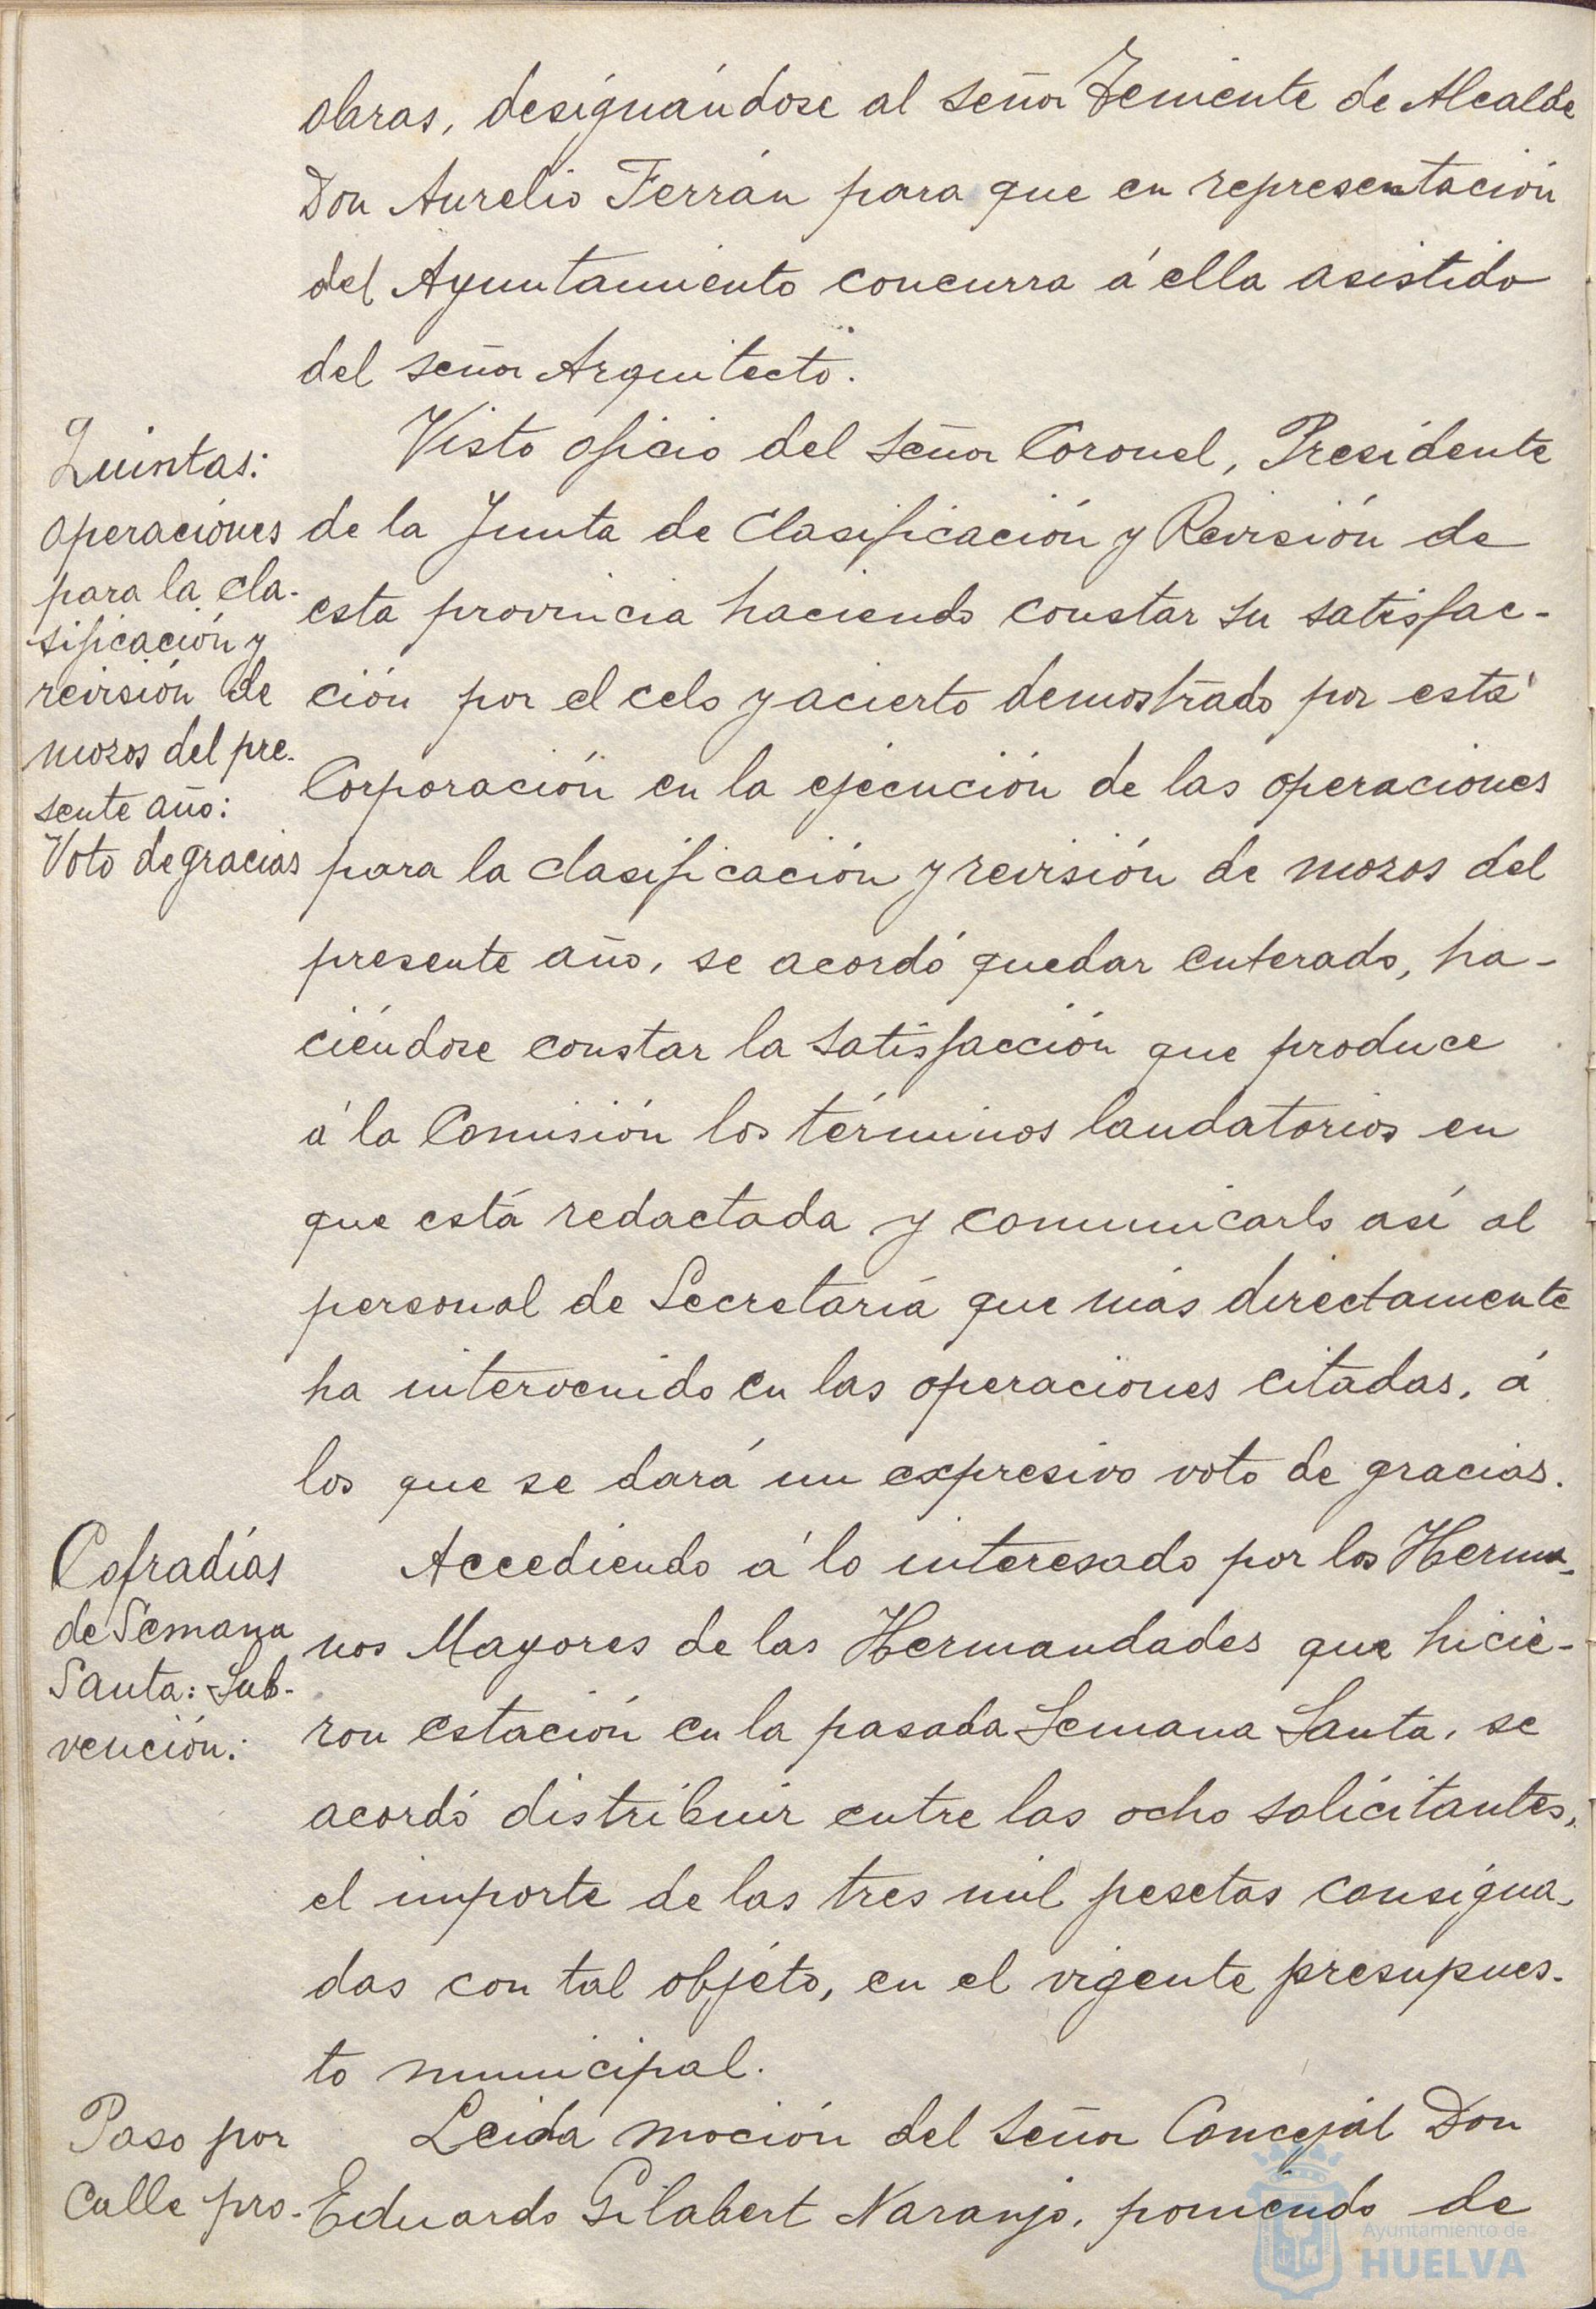 obras, designándose al señor Teniente de Alcalde
Don Aurelio Ferrán para que en representación
del Ayuntamiento concurra á ella asistido
del señor Arquitecto.
Quintas:
operaciones
para la cla-
sificación y
revisión de
mozos del pre-
sente año:
Voto de gracias
Visto oficio del señor Coronel, Presidente
de la Junta de Clasificación y Revisión de
esta provincia haciendo constar su satisfac-
ción por el celo y acierto demostrado por esta
Corporación en la ejecución de las operaciones
para la clasificación y revisión de mozos del
presente año, se acordó quedar enterado, ha-
ciéndose constar la satisfacción que produce
á la Comisión los términos laudatorios en
que está redactada y comunicarlo así al
personal de Secretaría que más directamente
ha intervenido en las operaciones citadas, á
los que se dará un expresivo voto de gracias.
Cofradías
de Semana
Santa: Sub-
vención:
Accediendo á lo interesado por los Herma-
nos Mayores de las Hermandades que hicie-
ron estación en la pasada Semana Santa, se
acordó distribuir entre las ocho solicitantes,
el importe de las tres mil pesetas consigna-
das con tal objéto, en el vigente presupues-
to municipal.
Paso por
Calle pro-
Leida moción del señor Concejal Don
Eduardo Gilabert Naranjo, poniendo de
Ayuntamiento de
HUELVA